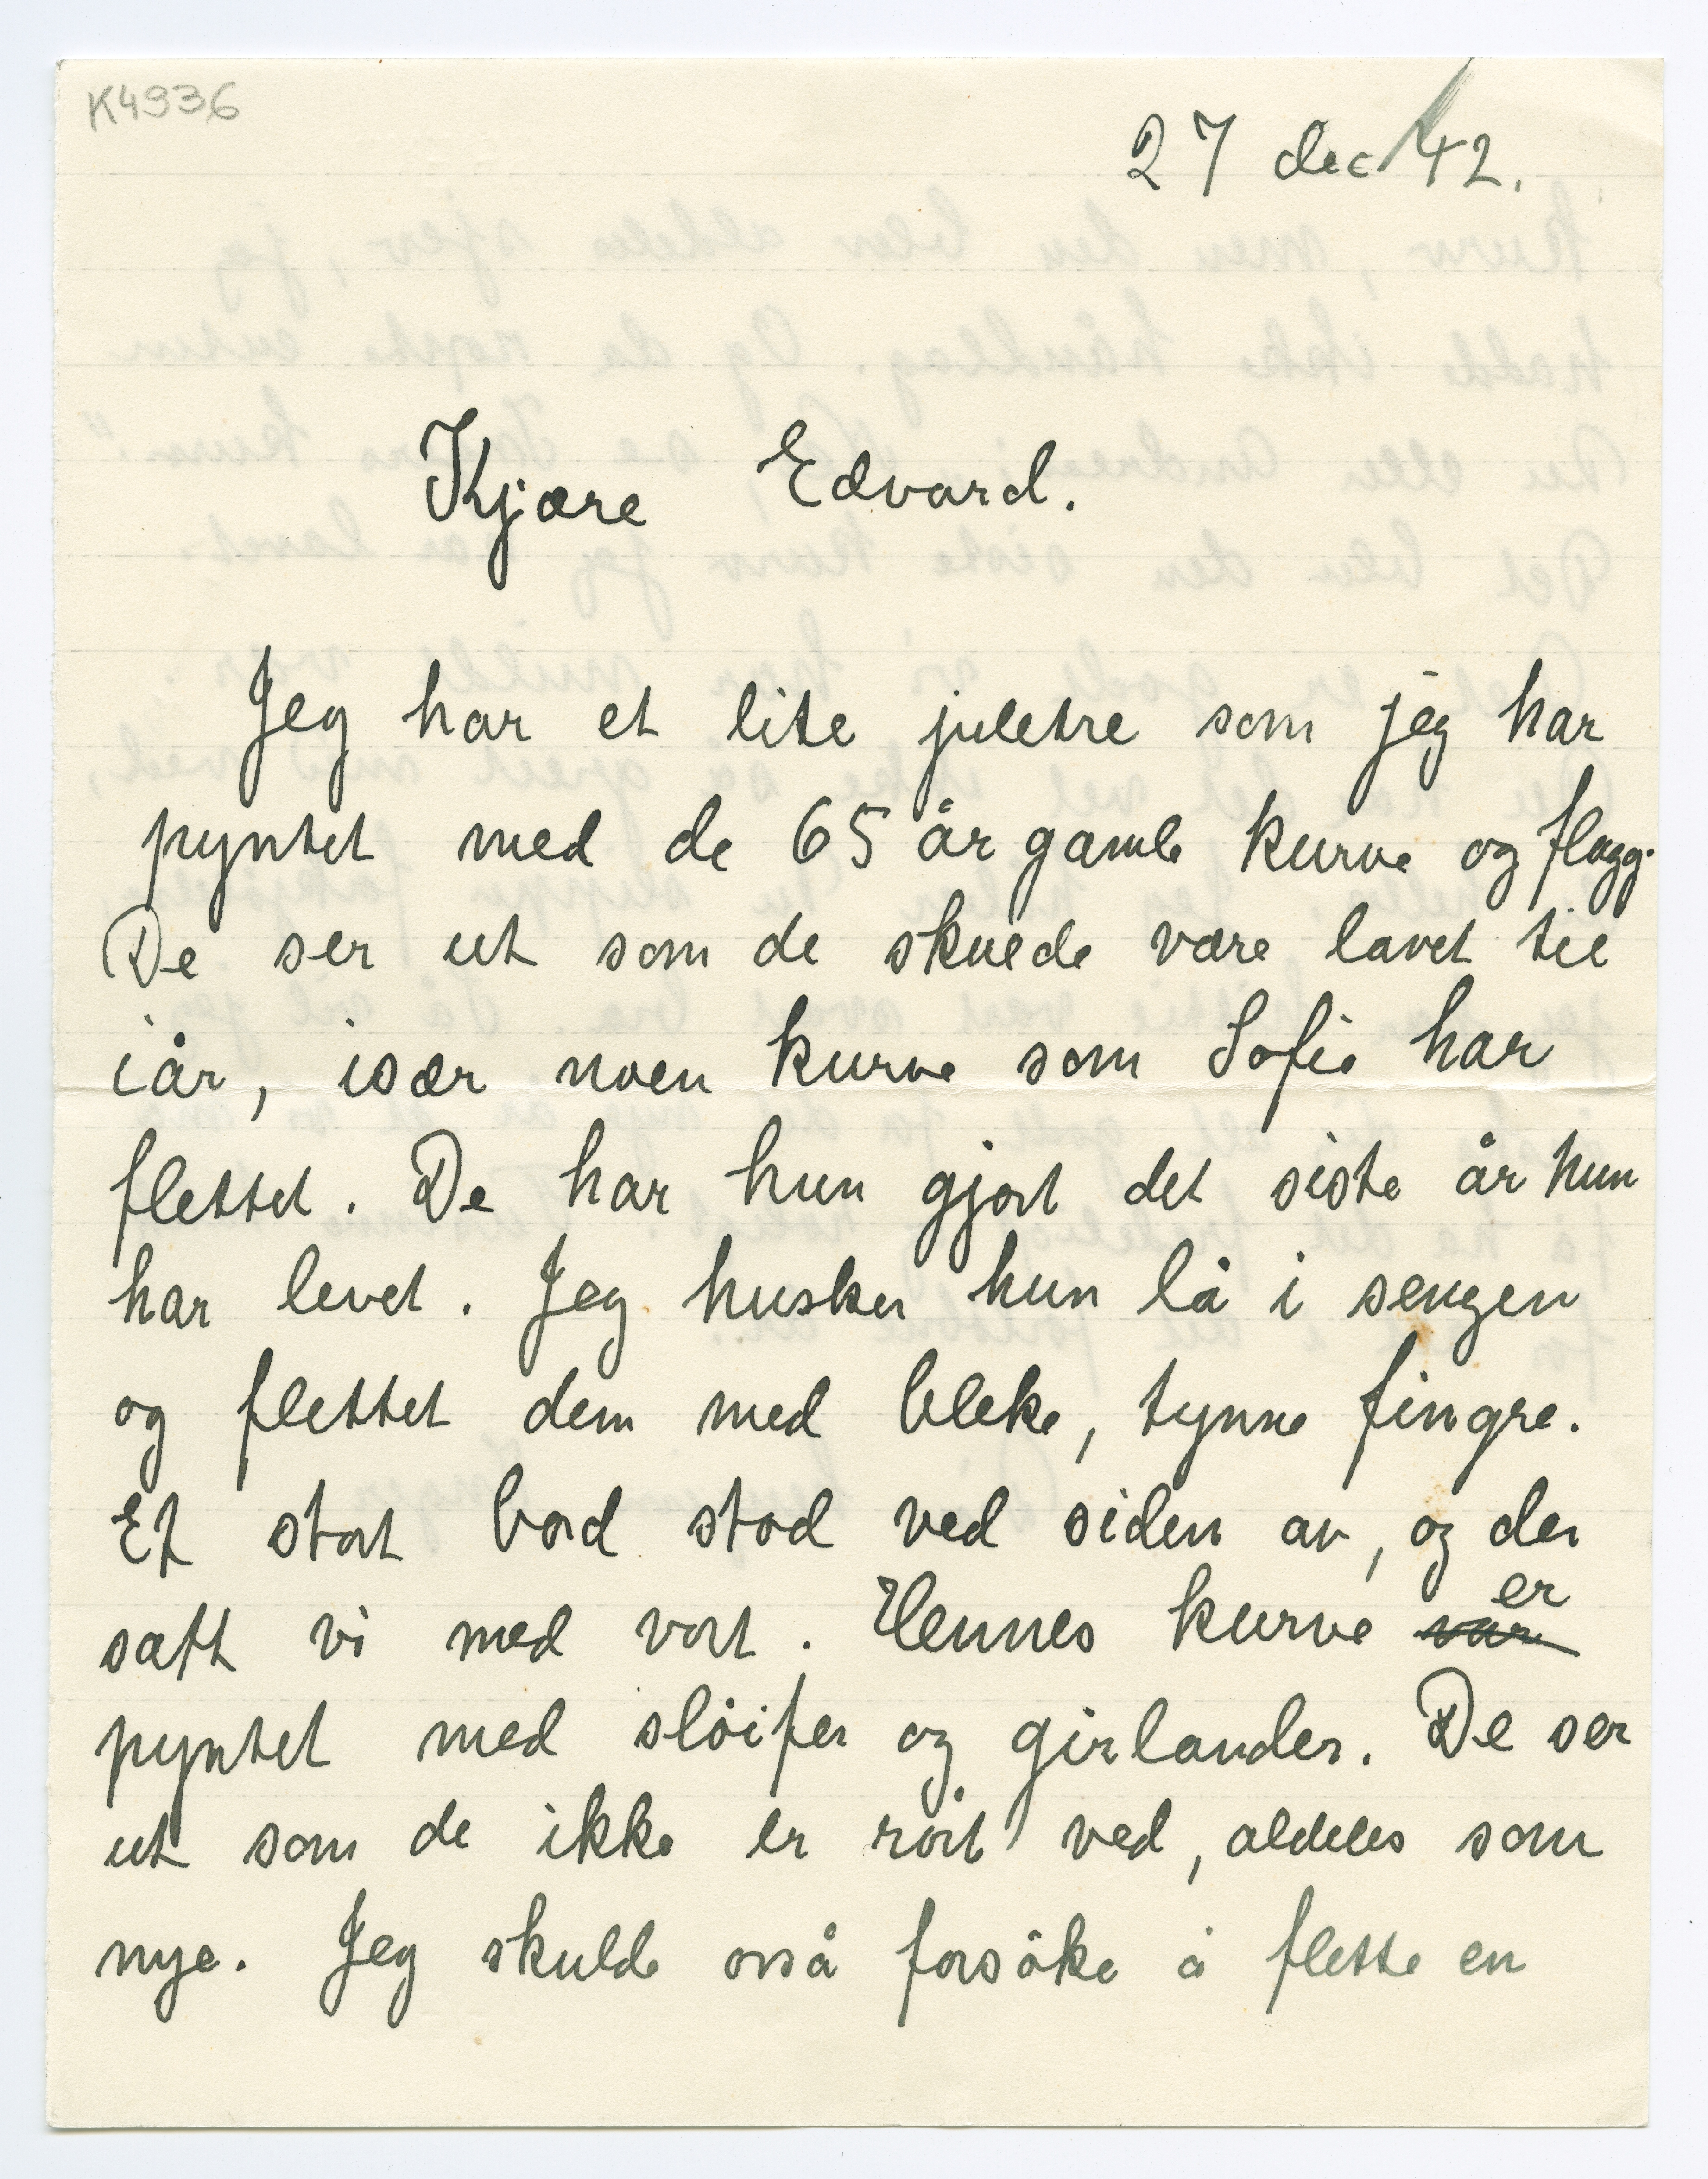 K4936
27 dec 42.
Kjære Edvard.
Jeg har et lite juletre som jeg har
pyntet med de 65 år gamle kurve og flagg.
De ser ut som de skulde være lavet til
iår, især noen kurve som Sofie har
flettet. De har hun gjort det siste år hun
har levet. Jeg husker hun lå i sengen
og flettet dem med bleke, tynne fingre.
Et stort bord stod ved siden av, og der
satt vi med vort. Hennes kurve var er
pyntet med slöifer og girlander. De ser
ut som de ikke er rört ved, aldeles som
nye. Jeg skulde osså forsöke å flette en